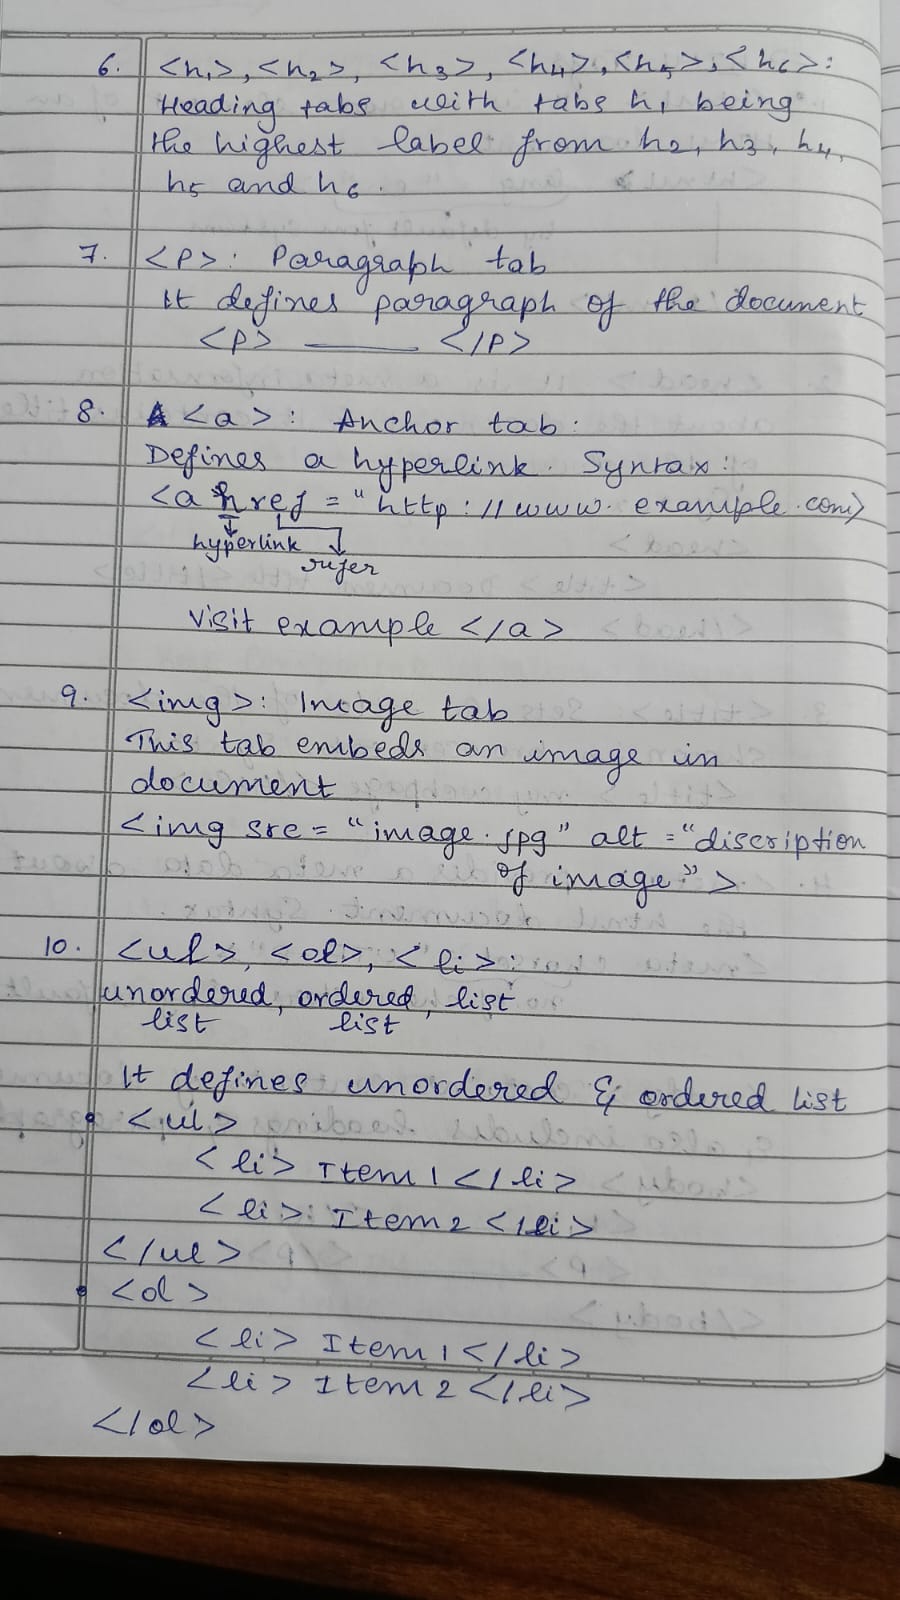 6. <h1>, <h2>, <h3>, <h4>, <h5>, <h6>:
Heading tabs with tabs h1 being
the highest label from h2, h3, h4,
h5 and h6.
7. <P>: Paragraph tab
It defines paragraph of the document
<P> ——— </P>
8. <a>: Anchor tab:
Defines a hyperlink. Syntax:
<a href = "http://www.example.com>
hyperlink
refer
visit example </a>
9. <img>: Image tab
This tab embeds an image in
document
<img src = "image.jpg" alt = "discription
of image">
10. <ul>, <ol>, <li>:
unordered, ordered, list
list list
It defines unordered & ordered list
• <ul>
<li> Item 1 </li>
<li> Item 2 </li>
</ul>
• <ol>
<li> Item 1 </li>
<li> Item 2 </li>
</ol>